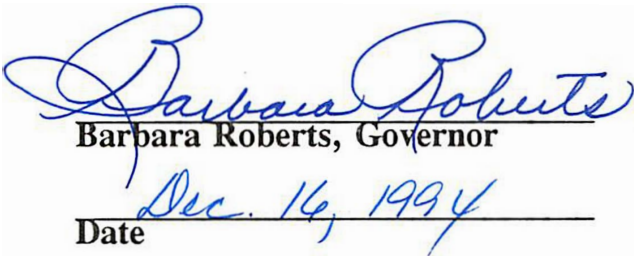 Barbara Roberts
Barbara Roberts, Governor
Dec. 16, 1994
Date